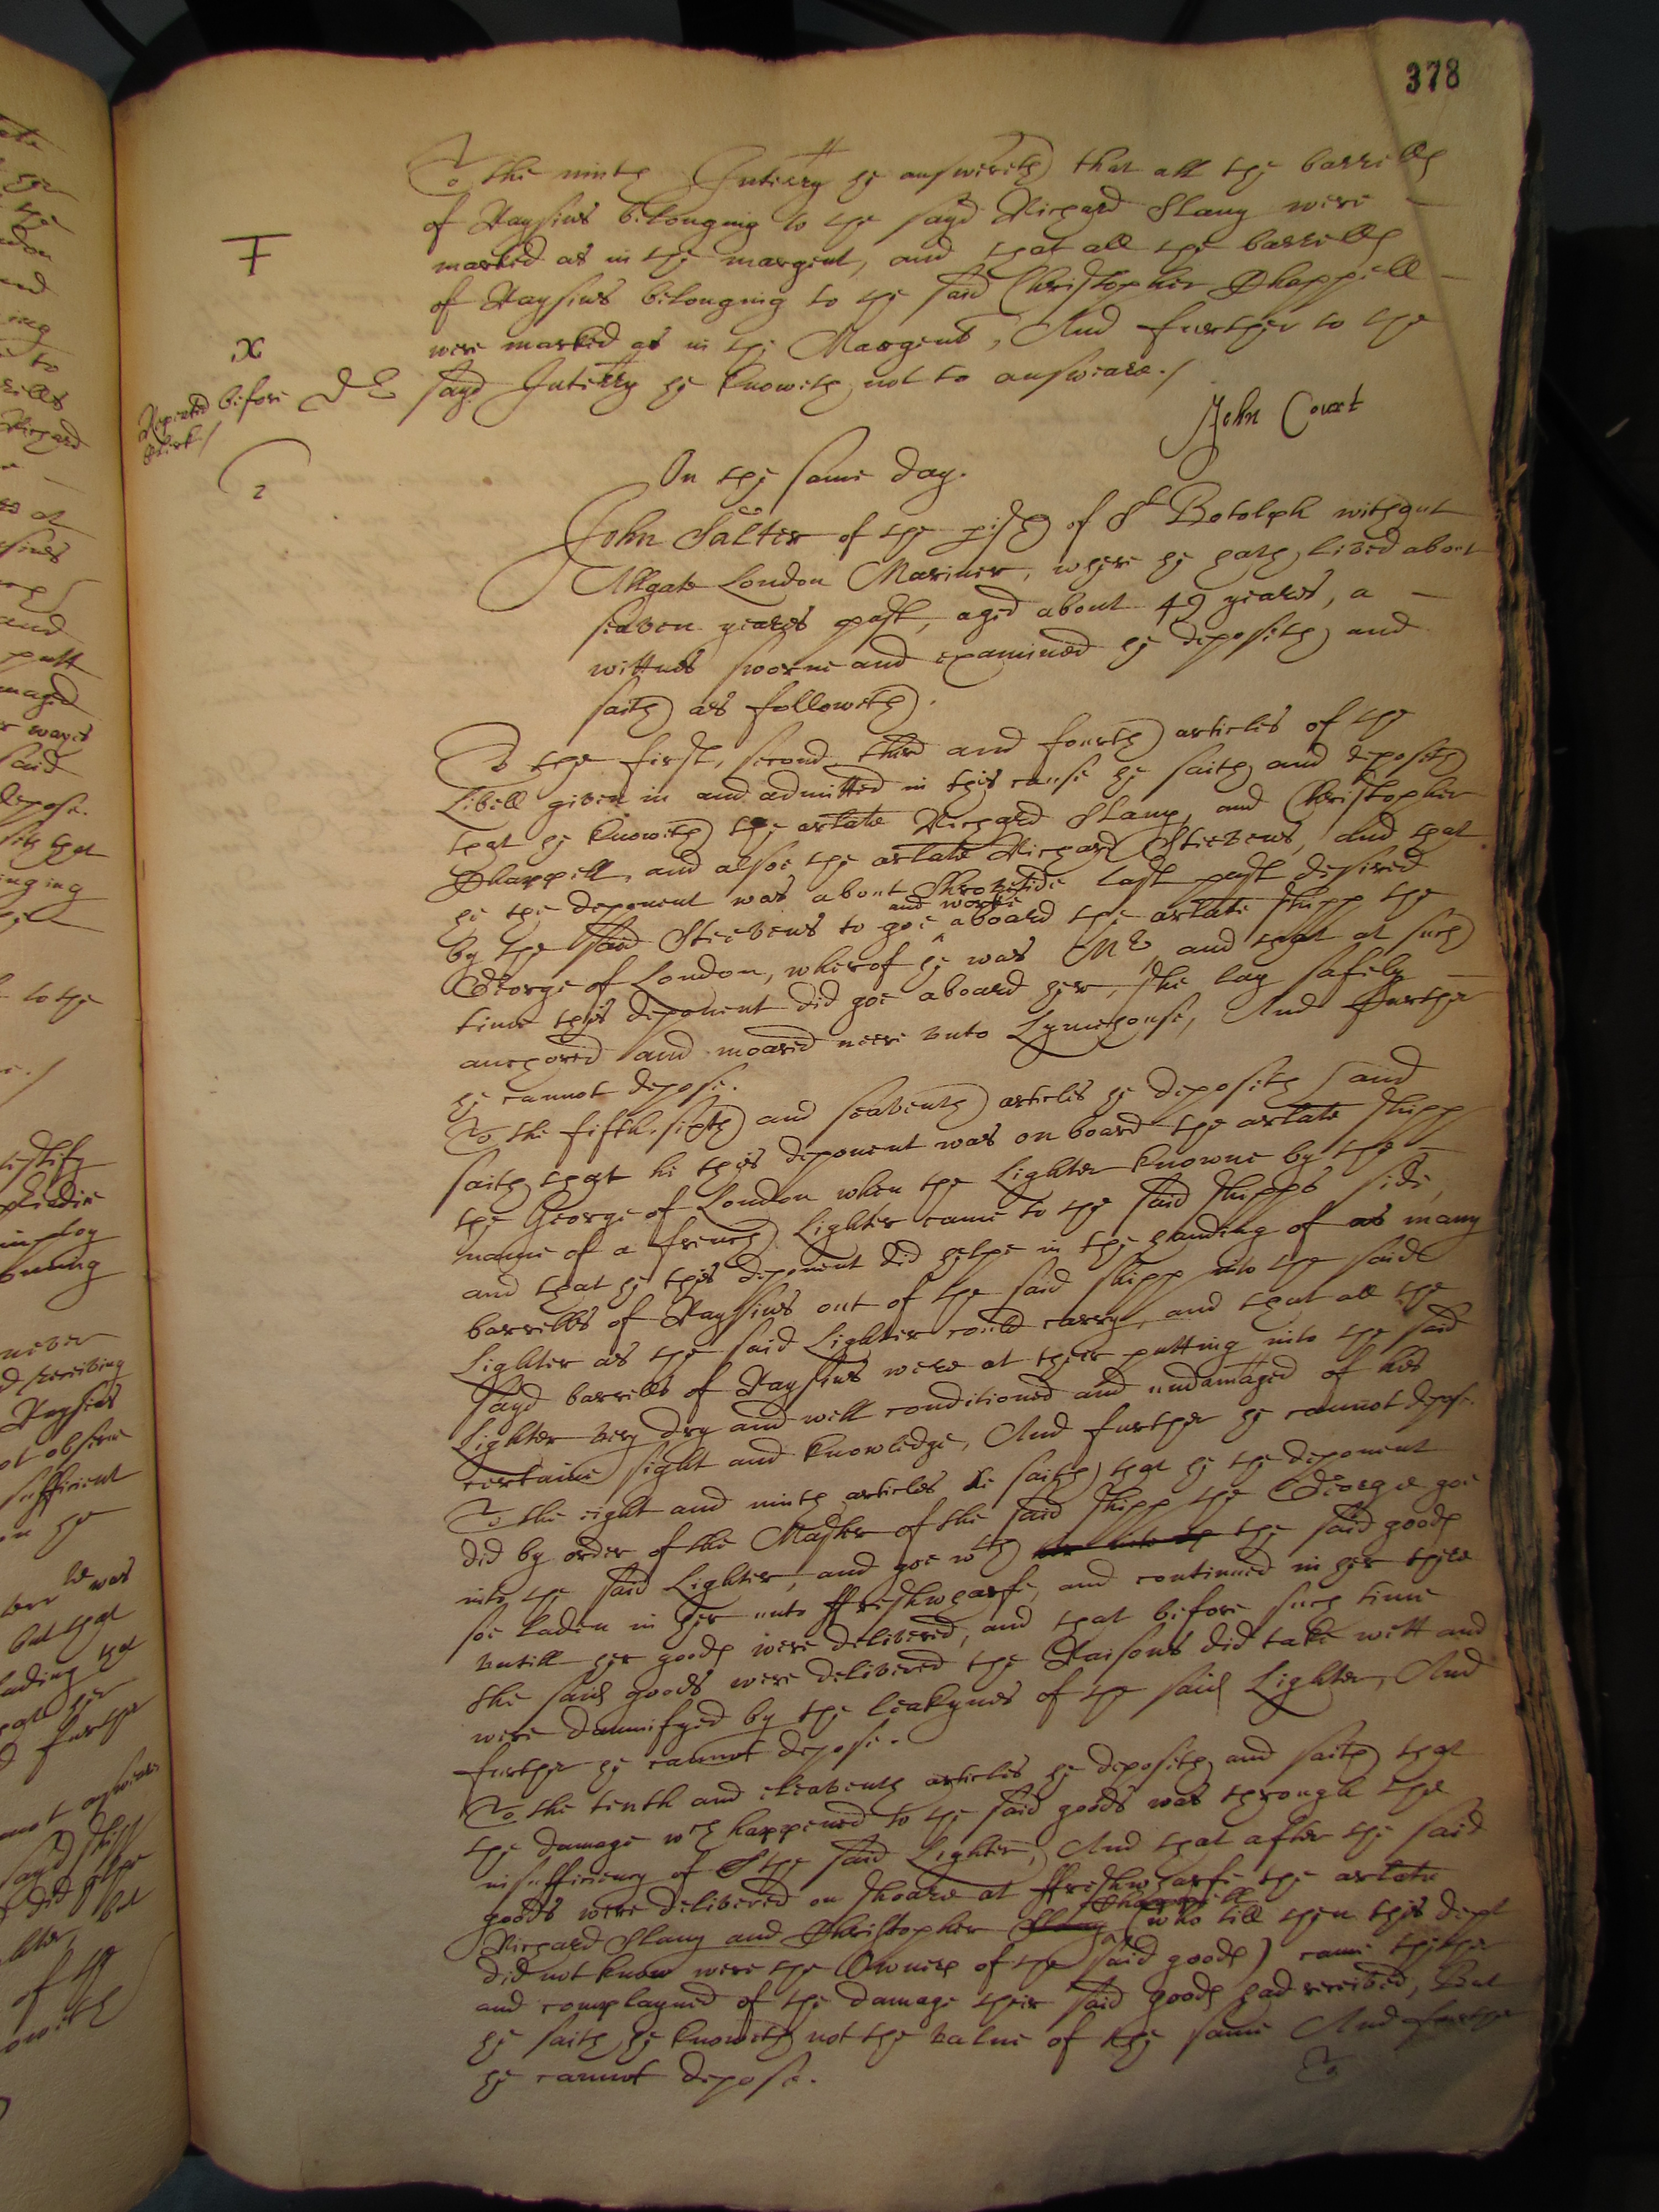 378
To the ninth Interry he answereth that all the barrells
of Raysins belonging to the sayd Richard Slany were
marked as in the margent, and that all the barrells
of Raysins belonging to the said Christopher Chappell
were marked as in the Margent, And further to the
sayd Interry he knoweth not to answeare./
Repeated before
John Court
2
On the same day.
John Salter of the pish of St Botolph without
Allgate London Mariner, where he hath lived about
seaven yeares past, aged about 49 yeares, a
wittnes sworne and examined he deposeth and
saith as followeth.
To the first, second, third and fourth articles of the
Libell given in and admitted in this cause he saith and deposeth
that he knoweth the arlate Richard Slany, and Christopher
Chappell, and alsoe the arlate Richard Steevens, And that
he the deponent was about Shrovetide last past desired
by the said Steevens to goe and worke aboard the arlate shipp the
George of London, wherof he was Mr and that at such
time this deponent did goe aboard her, she lay safely
anchored and moared neere unto Lymehouse, And further
he cannot depose.
To the fifth, sixth and seaventh articles he deposeth and
saith that he this deponent was on board the arlate shipp
the George of London when the Lighter knowne by the
name of a french Lighter came to the said shipps side,
and that he this deponent did helpe in the handing of as many
barrells of Raysins out of the said shipp into the said
Lighter as the said Lighter could carry, and that all the
sayd barrells of Raysins were at their putting into the said
Lighter very dry and well conditioned and undamaged of his
certaine sight and knowledge, And further he cannot depose.
To the eight and ninth articles he saith that he the deponent
did by order of the Master of the said shipp the George goe
into the said Lighter, and goe wth the said goods
soe laden in her unto ffreshwharfe, and continued in her there
untill her goods were delivered, and that before such time
the said goods were delivered the Raisons did take wett and
were damnifyed by the leakynes of the said Lighter, And
further he cannot depose.
To the tenth and eleaventh articles he deposeth and saith that
the damage wch happened to the said goods was through the
insufficiency of the said Lighter, And that after the said
goods were delivered on shoare at ffreshwharfe the arlate
Richard Slany and Christopher Slany Chappell (who till then this dept
did not know were the Owners of the said goods) came thither
and complayned of the damage their said goods had received, But
he saith he knoweth not the value of the same And further
he cannot depose.
To